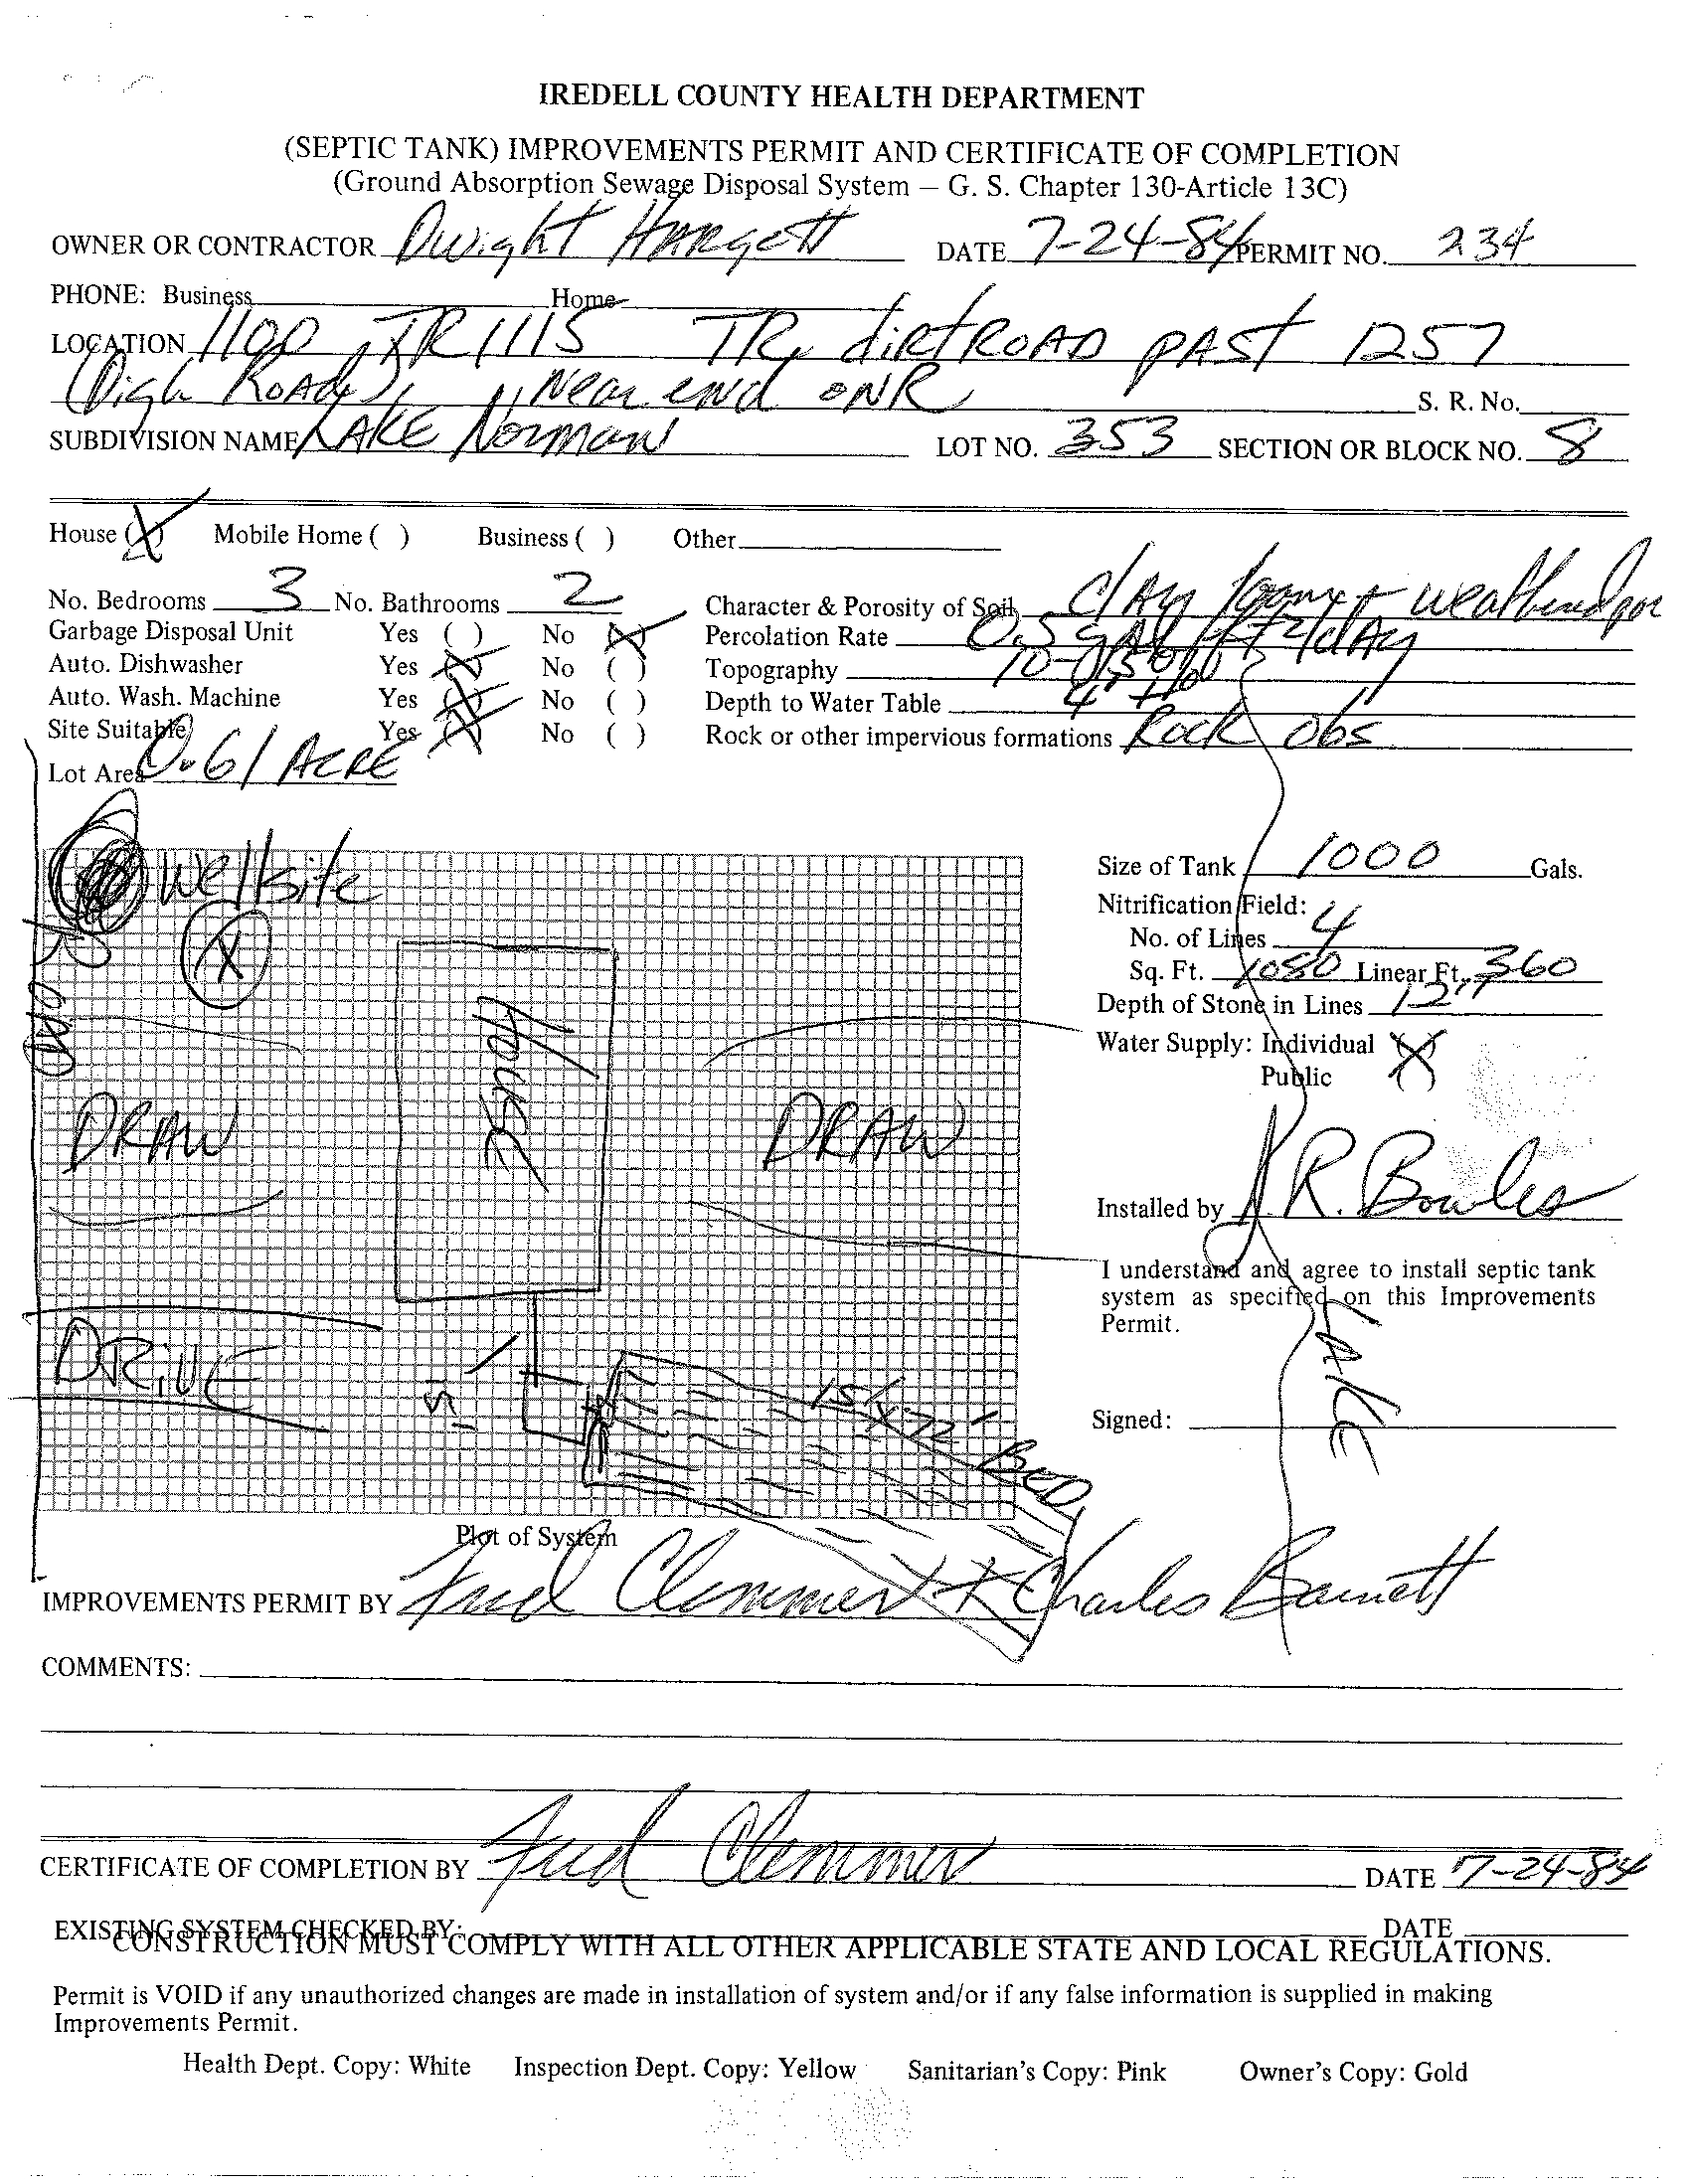 IREDELL COUNTY HEALTH DEPARTMENT
(SEPTIC TANK) IMPROVEMENTS PERMIT AND CERTIFICATE OF COMPLETION
(Ground Absorption Sewage Disposal System – G. S. Chapter 130-Article 13C)
OWNER OR CONTRACTOR Dwight Hargett DATE 7-24-84 PERMIT NO. 234
PHONE: Business Home
LOCATION 1100 TR 1115 TR, dirt ROAD past 1257
Road), Near end on R S. R. No.
SUBDIVISION NAME LAKE Norman LOT NO. 353 SECTION OR BLOCK NO. 8
House (X) Mobile Home ( ) Business ( ) Other
No. Bedrooms 3 No. Bathrooms 2 Character & Porosity of Soil Clay loamy + weathered por
Garbage Disposal Unit Yes ( ) No (X) Percolation Rate 0.5 gal/ft2/day
Auto. Dishwasher Yes (X) No ( ) Topography 10-15%
Auto. Wash. Machine Yes (X) No ( ) Depth to Water Table 4'+
Site Suitable Yes (X) No ( ) Rock or other impervious formations Rock obs
Lot Area 0.61 ACRE
Wellsite
X
House
DRAW
DRAW
DRIVE
5'
15' X 72' Bed
Size of Tank 1000 Gals.
Nitrification Field:
No. of Lines 4
Sq. Ft. 1080 Linear Ft. 360
Depth of Stone in Lines 12"
Water Supply: Individual (X)
Public ( )
Installed by J. R. Bowles
I understand and agree to install septic tank
system as specified on this Improvements
Permit.
LAKE
Signed:
Plot of System
IMPROVEMENTS PERMIT BY Fred Clemmer + Charles Barnett
COMMENTS:
CERTIFICATE OF COMPLETION BY Fred Clemmer DATE 7-24-84
EXISTING SYSTEM CHECKED BY: DATE
CONSTRUCTION MUST COMPLY WITH ALL OTHER APPLICABLE STATE AND LOCAL REGULATIONS.
Permit is VOID if any unauthorized changes are made in installation of system and/or if any false information is supplied in making
Improvements Permit.
Health Dept. Copy: White Inspection Dept. Copy: Yellow Sanitarian's Copy: Pink Owner's Copy: Gold